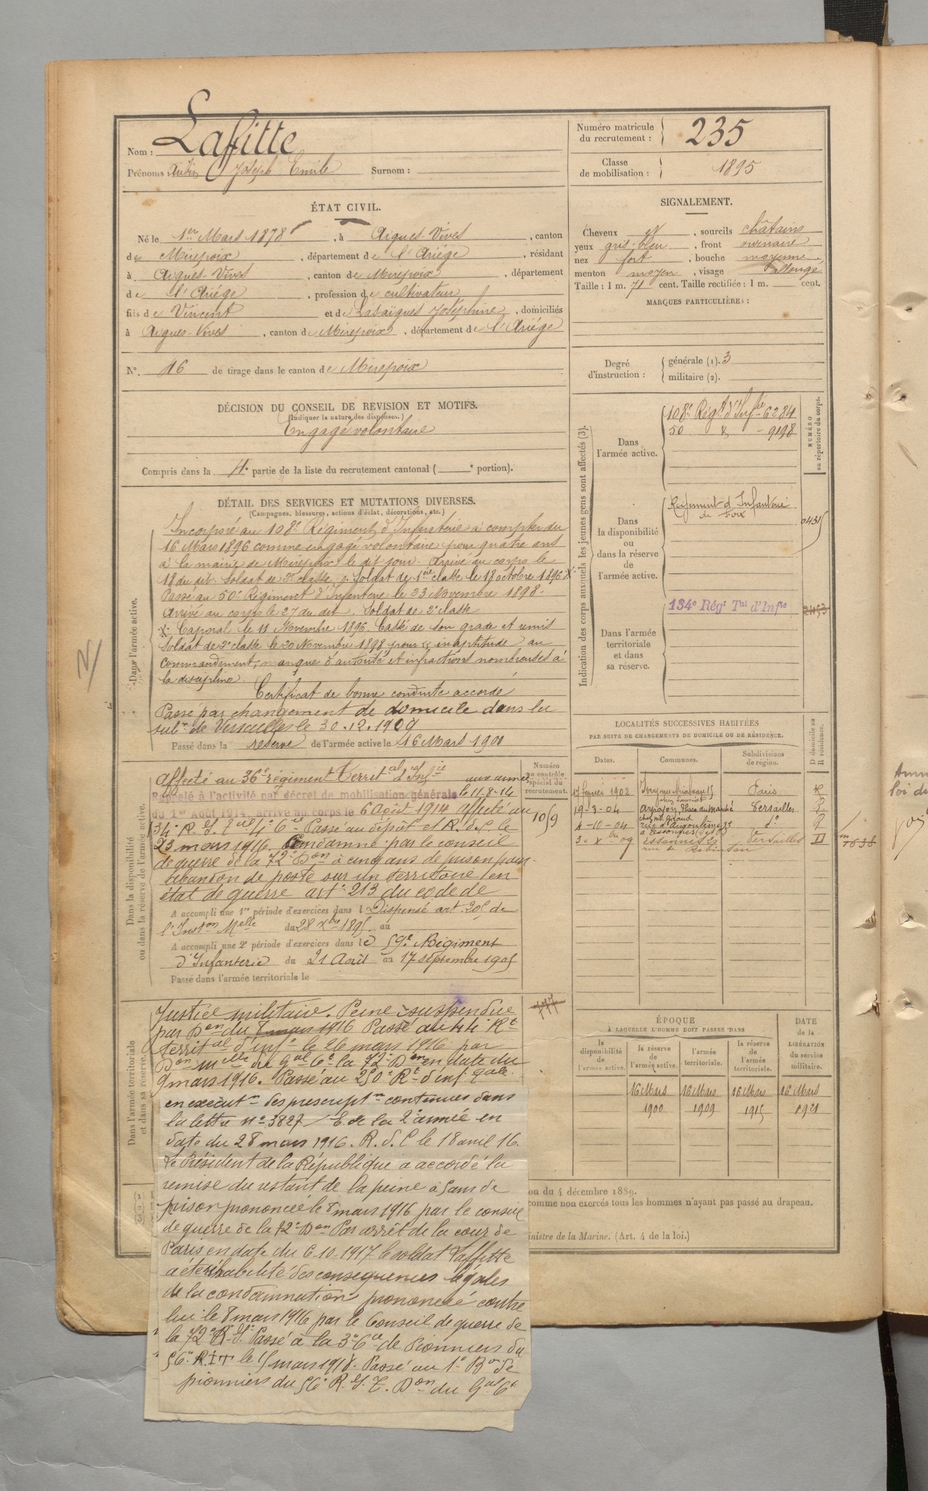 Nom : Lafitte
Prénoms Joseph Emile Surnom :
Numéro matricule du recrutement : 235
Classe de mobilisation : 1895
ÉTAT CIVIL.
Né le 1er Mars 1878, à Aigues-Vives, canton
de Mirepoix, département de l'Ariége, résidant
à Aigues-Vives, canton de Mirepoix, département
de l'Ariége, profession de cultivateur
fils de Vincent et de Joséphine, domiciliés
à Aigues-Vives, canton de Mirepoix, département de l'Ariége
N° 16 de tirage dans le canton de Mirepoix
SIGNALEMENT.
Cheveux et, sourcils châtains
yeux gris-bleu, front ordinaire
nez fort, bouche moyenne
menton moyen, visage allongé
Taille : 1 m. 71 cent. Taille rectifiée : 1 m. cent.
MARQUES PARTICULIÈRES :
Degré d'instruction : générale (1). 3
militaire (2).
DÉCISION DU CONSEIL DE REVISION ET MOTIFS.
(Indiquer la nature des dispenses.)
Engagé volontaire
Compris dans la 4e partie de la liste du recrutement cantonal ( e portion).
DÉTAIL DES SERVICES ET MUTATIONS DIVERSES.
(Campagnes, blessures, actions d'éclat, décorations, etc.)
Dans l'armée active.
Incorporé au 108e Régiment d'Infanterie à compter du
16 Mars 1896 comme engagé volontaire pour quatre ans
à la mairie de Mirepoix le dit jour. Arrivé au corps le
18 du dit. Soldat de 2e classe, soldat de 1re classe le 18 octobre 1896 X
Passé au 50e Régiment d'Infanterie le 23 Novembre 1898.
Arrivé au corps le 27 du dit, Soldat de 2e classe
X Caporal le 11 Novembre 1896. Cassé de son grade et remis
Soldat de 2e classe le 20 Novembre 1898 pour inaptitude au
commandement, manque d'autorité et infractions nombreuses à
la discipline
Certificat de bonne conduite accordé
Passé par changement de domicile dans la
subon de Versailles le 30.12.1909
Passé dans la réserve de l'armée active le 16 Mars 1900
Indication des corps auxquels les jeunes gens sont affectés (3).
NUMÉRO au répertoire du corps.
Dans l'armée active.
108e Régt d'Infie 6284
50 9198
Dans la disponibilité ou dans la réserve de l'armée active.
Régiment d'Infanterie de Foix
Dans l'armée territoriale et dans sa réserve.
134e Régt Tal d'Infie
LOCALITÉS SUCCESSIVES HABITÉES
PAR SUITE DE CHANGEMENTS DE DOMICILE OU DE RÉSIDENCE.
Dates. Communes. Subdivisions de région. D domicile ou R résidence.
février 1902 Paris R
19-3-04 Versailles R
4-10-04 do R
Versailles D
Dans la disponibilité ou dans la réserve de l'armée active.
Numéro au contrôle spécial du recrutement.
1059
Affecté au 36e régiment Territal d'Infie
aux armées le 11-8-14
Rappelé à l'activité par décret de mobilisation générale
du 1er Août 1914, arrivé au corps le 6 Août 1914 affecté au
Passé au dépôt
23 mars 1916. Condamné par le conseil
de guerre de la 72e Don à cinq ans de prison pour
abandon de poste sur un territoire en
état de guerre art. 213 du code de
A accompli une 1re période d'exercices dans l Dispensé art 208 de
l'Inston Melle du 28 au
A accompli une 2e période d'exercices dans le 59e Régiment
d'Infanterie du 21 Août au 17 septembre 1905
Passé dans l'armée territoriale le
Dans l'armée territoriale et dans sa réserve.
Justice militaire. Peine suspendue
par Don du 1916 Passé au 44e Rt
territal d'infie le 26 mars 1916 par
Don Melle du Gal Ct la 72e Don en date du
9 mars 1916. Passé au 250e Rt d'inf
en executon des prescripton contenues dans
la lettre no 3827 de la 2e armée en
date du 28 mars 1916. R.d.C le 18 avril 16
Le Président de la République a accordé la
remise du restant de la peine 5 ans de
prison prononcée le 8 mars 1916 par le conseil
de guerre de la 72e Don Par arrêt de la cour de
Paris en date du 6.10.1917 le soldat Laffitte
a été réhabilité des conséquences légales
de la condamnation prononcée contre
lui le 8 mars 1916 par le Conseil de guerre de
la 72e Passé à la 3e Cie de Pionniers du
56e RIT le 5 mars 1918. Passé au 1er Bon de
pionniers du 56e R.I.T. Don du Gal Ct
ÉPOQUE
À LAQUELLE L'HOMME DOIT PASSER DANS
DATE de la LIBÉRATION du service militaire.
la disponibilité de l'armée active.
la réserve de l'armée active. 16 Mars 1900
l'armée territoriale. 16 Mars 1909
la réserve de l'armée territoriale. 16 Mars 1915
16 Mars 1921
on du 4 décembre 1889.
omme non exercés tous les hommes n'ayant pas passé au drapeau.
inistre de la Marine. (Art. 4 de la loi.)